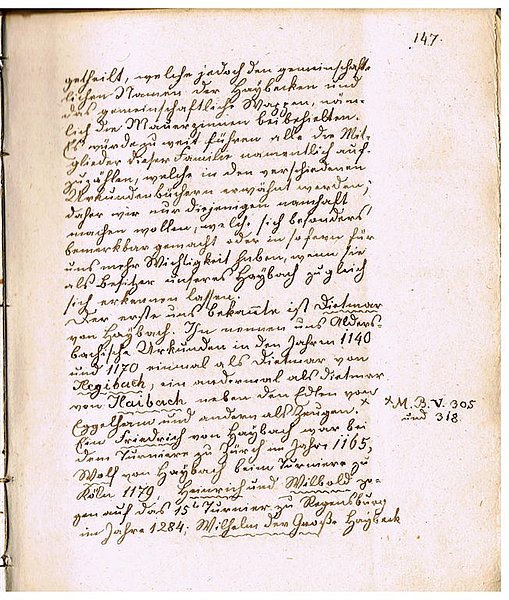 147.
getheilt, welche jedoch den gemeinschaft-
lichen Namen der Haybecken und
das gemeinschaftliche Wappen, näm-
lich die Mauerzinnen beibehielten.
Es würde zu weit führen alle die Mit-
glieder dieser Familie namentlich auf-
zuzählen, welche in den verschiedenen
Urkundenbüchern erwähnt werden,
daher wir nur diejenigen namhaft
machen wollen, welche sich besonders
bemerkbar gemacht oder in sofern für
uns mehr Wichtigkeit haben, wenn sie
als Besitzer unseres Haybach zugleich
sich erkennen lassen.
Der erste uns bekannte ist Dietmar
von Haybach. Ihn nennen uns Alders-
bachische Urkunden in den Jahren 1140
und 1170 einmal als Dietmar von
Hegibach, ein andermal als Dietmar
von Haibach neben den Edlen von
Eggelham und andern als Zeugen. x
x M. B. V. 305
und 318.
Ein Friedrich von Haybach war bei
dem Turniere zu Zürch im Jahre 1165,
Wolf von Haybach beim Turniere zu
Köln 1179, Heinrich und Wilbold zo-
gen auf das 15te Turnier zu Regensburg
im Jahre 1284; Wilhelm der Große Haybeck